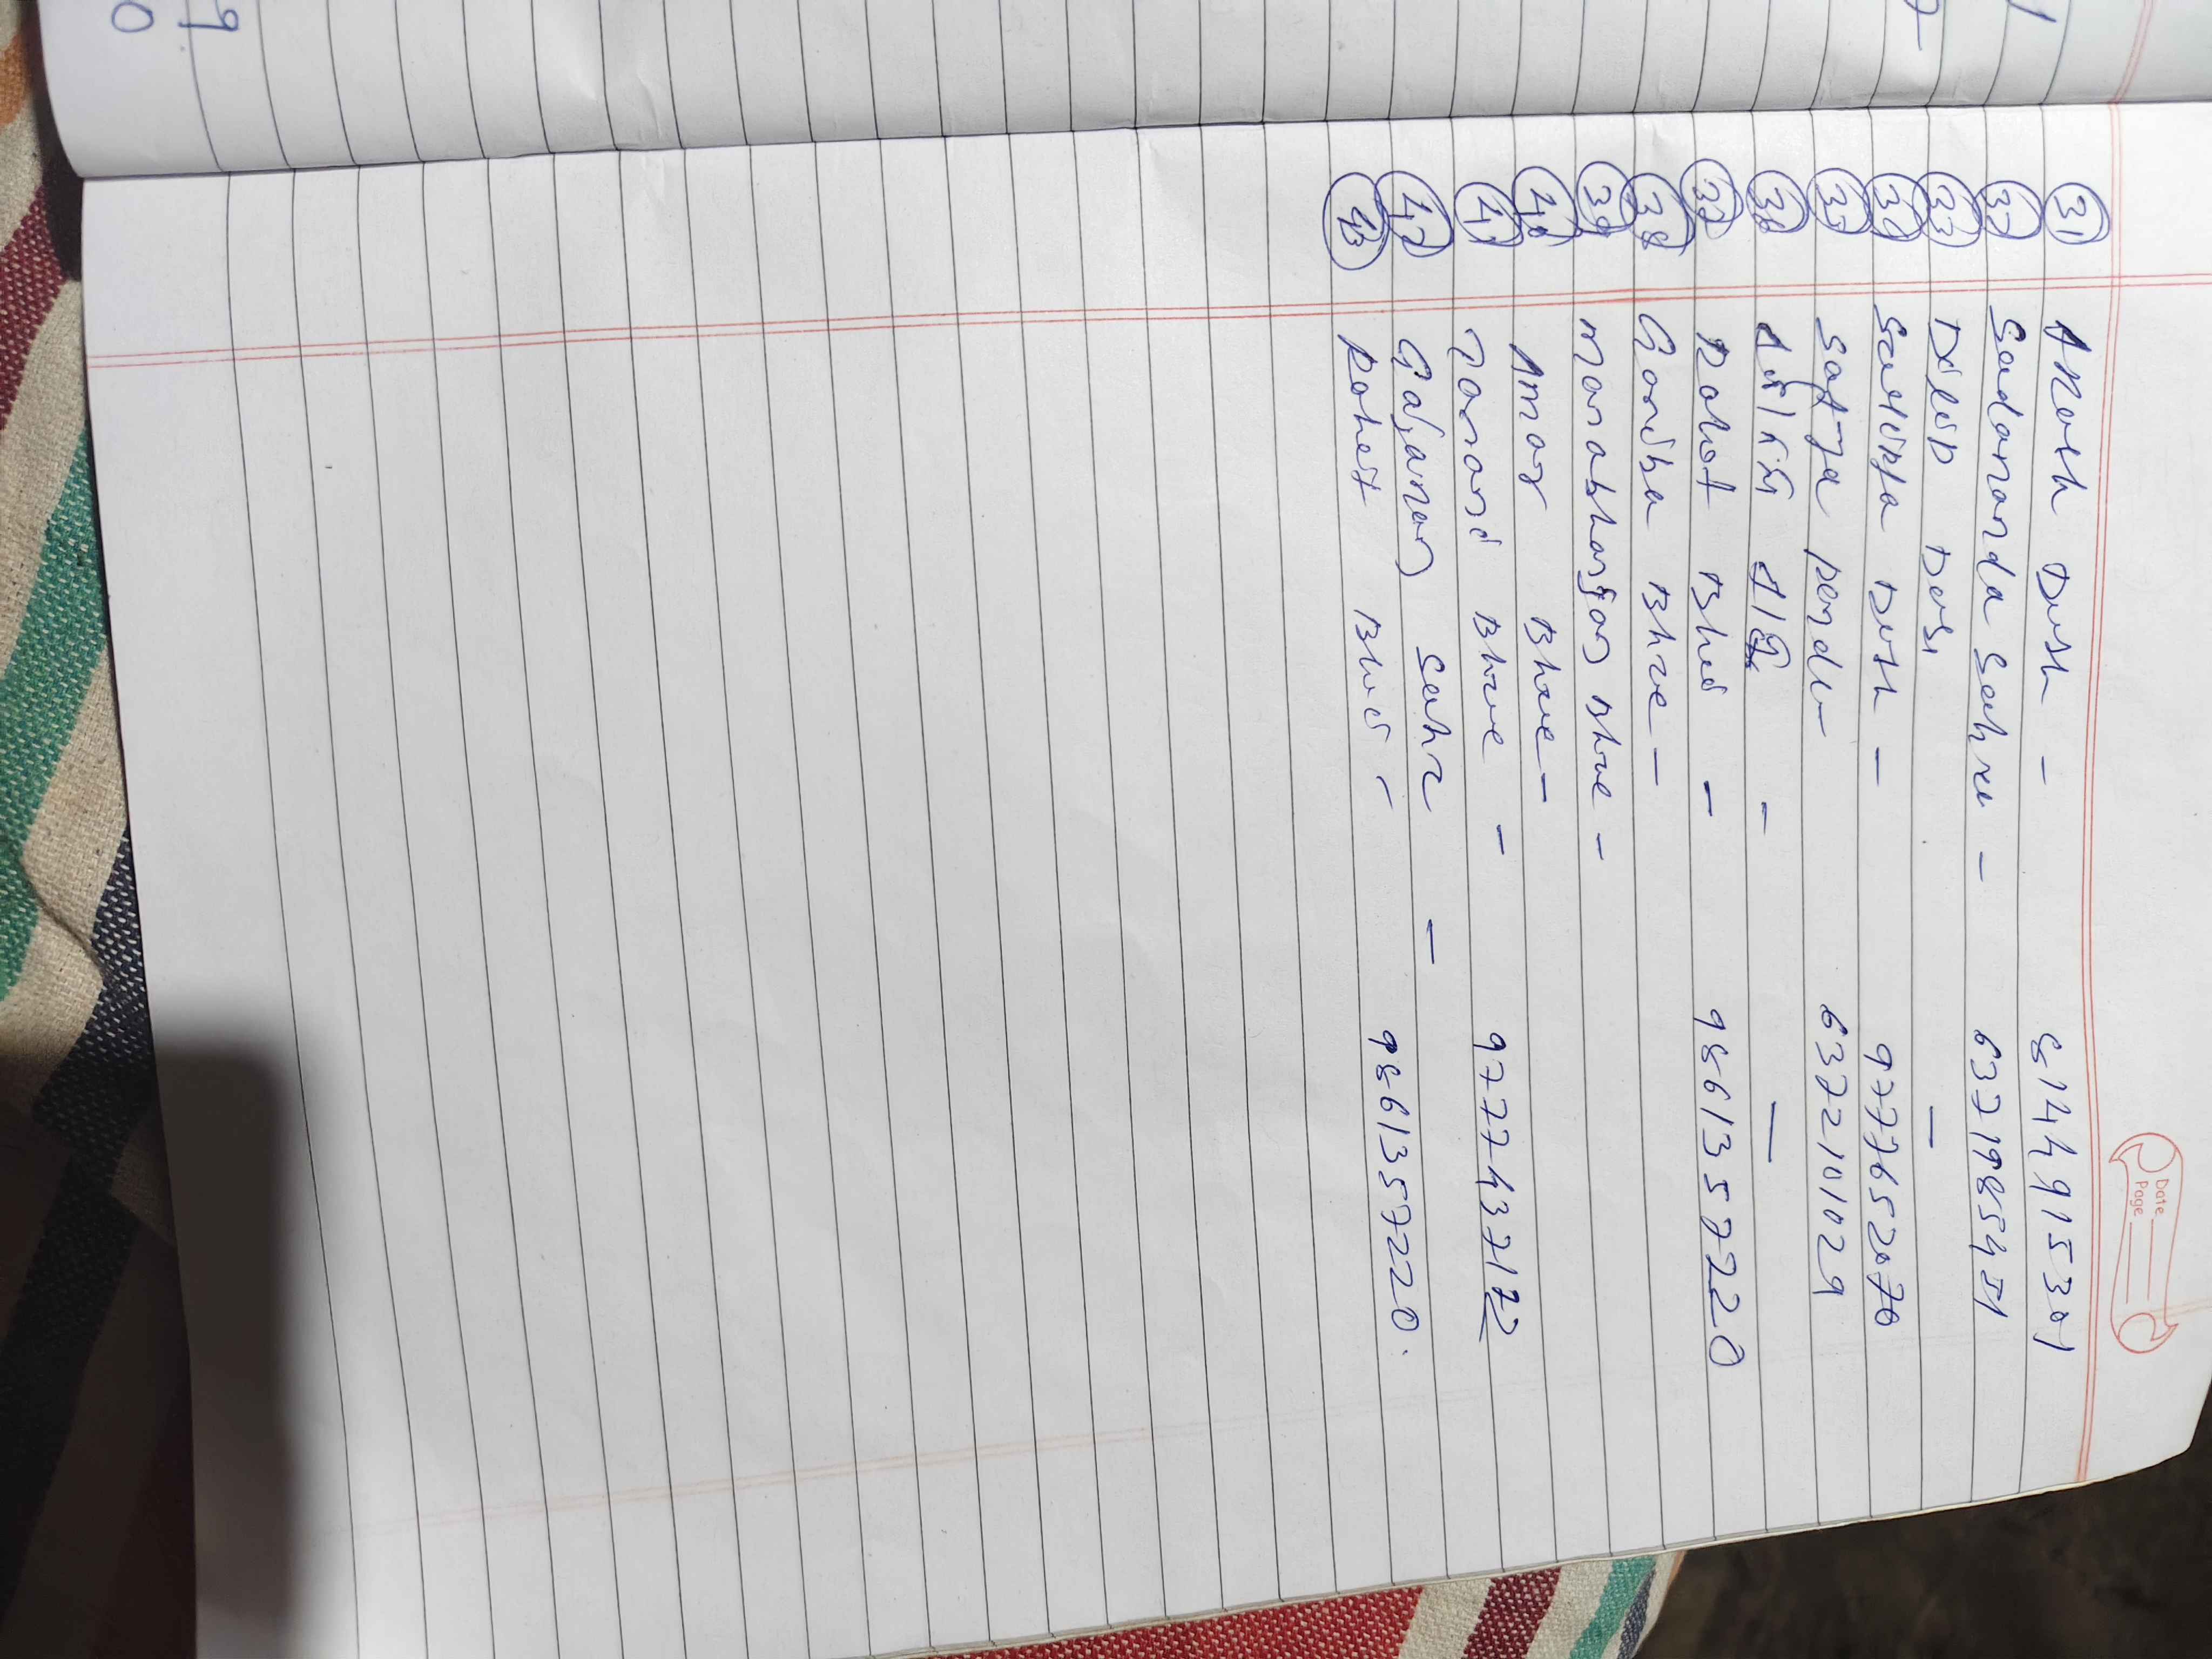 Date
Page
31 Akash Dash - 8144915301
32 Sadananda Sahu - 6371985451
33 Dilip Das -
34 Dash - 9777652070
35 Satya Pandu 6372101029
36 - -
37 Rohit Bhoi - 9861357220
38 Bhue -
39 Manabhanjan Bhue -
40 Amar Bhue -
41 Bhue - 9777437172
42 Gajanan Sahu -
43 Rohit Bhoi - 9861357220.